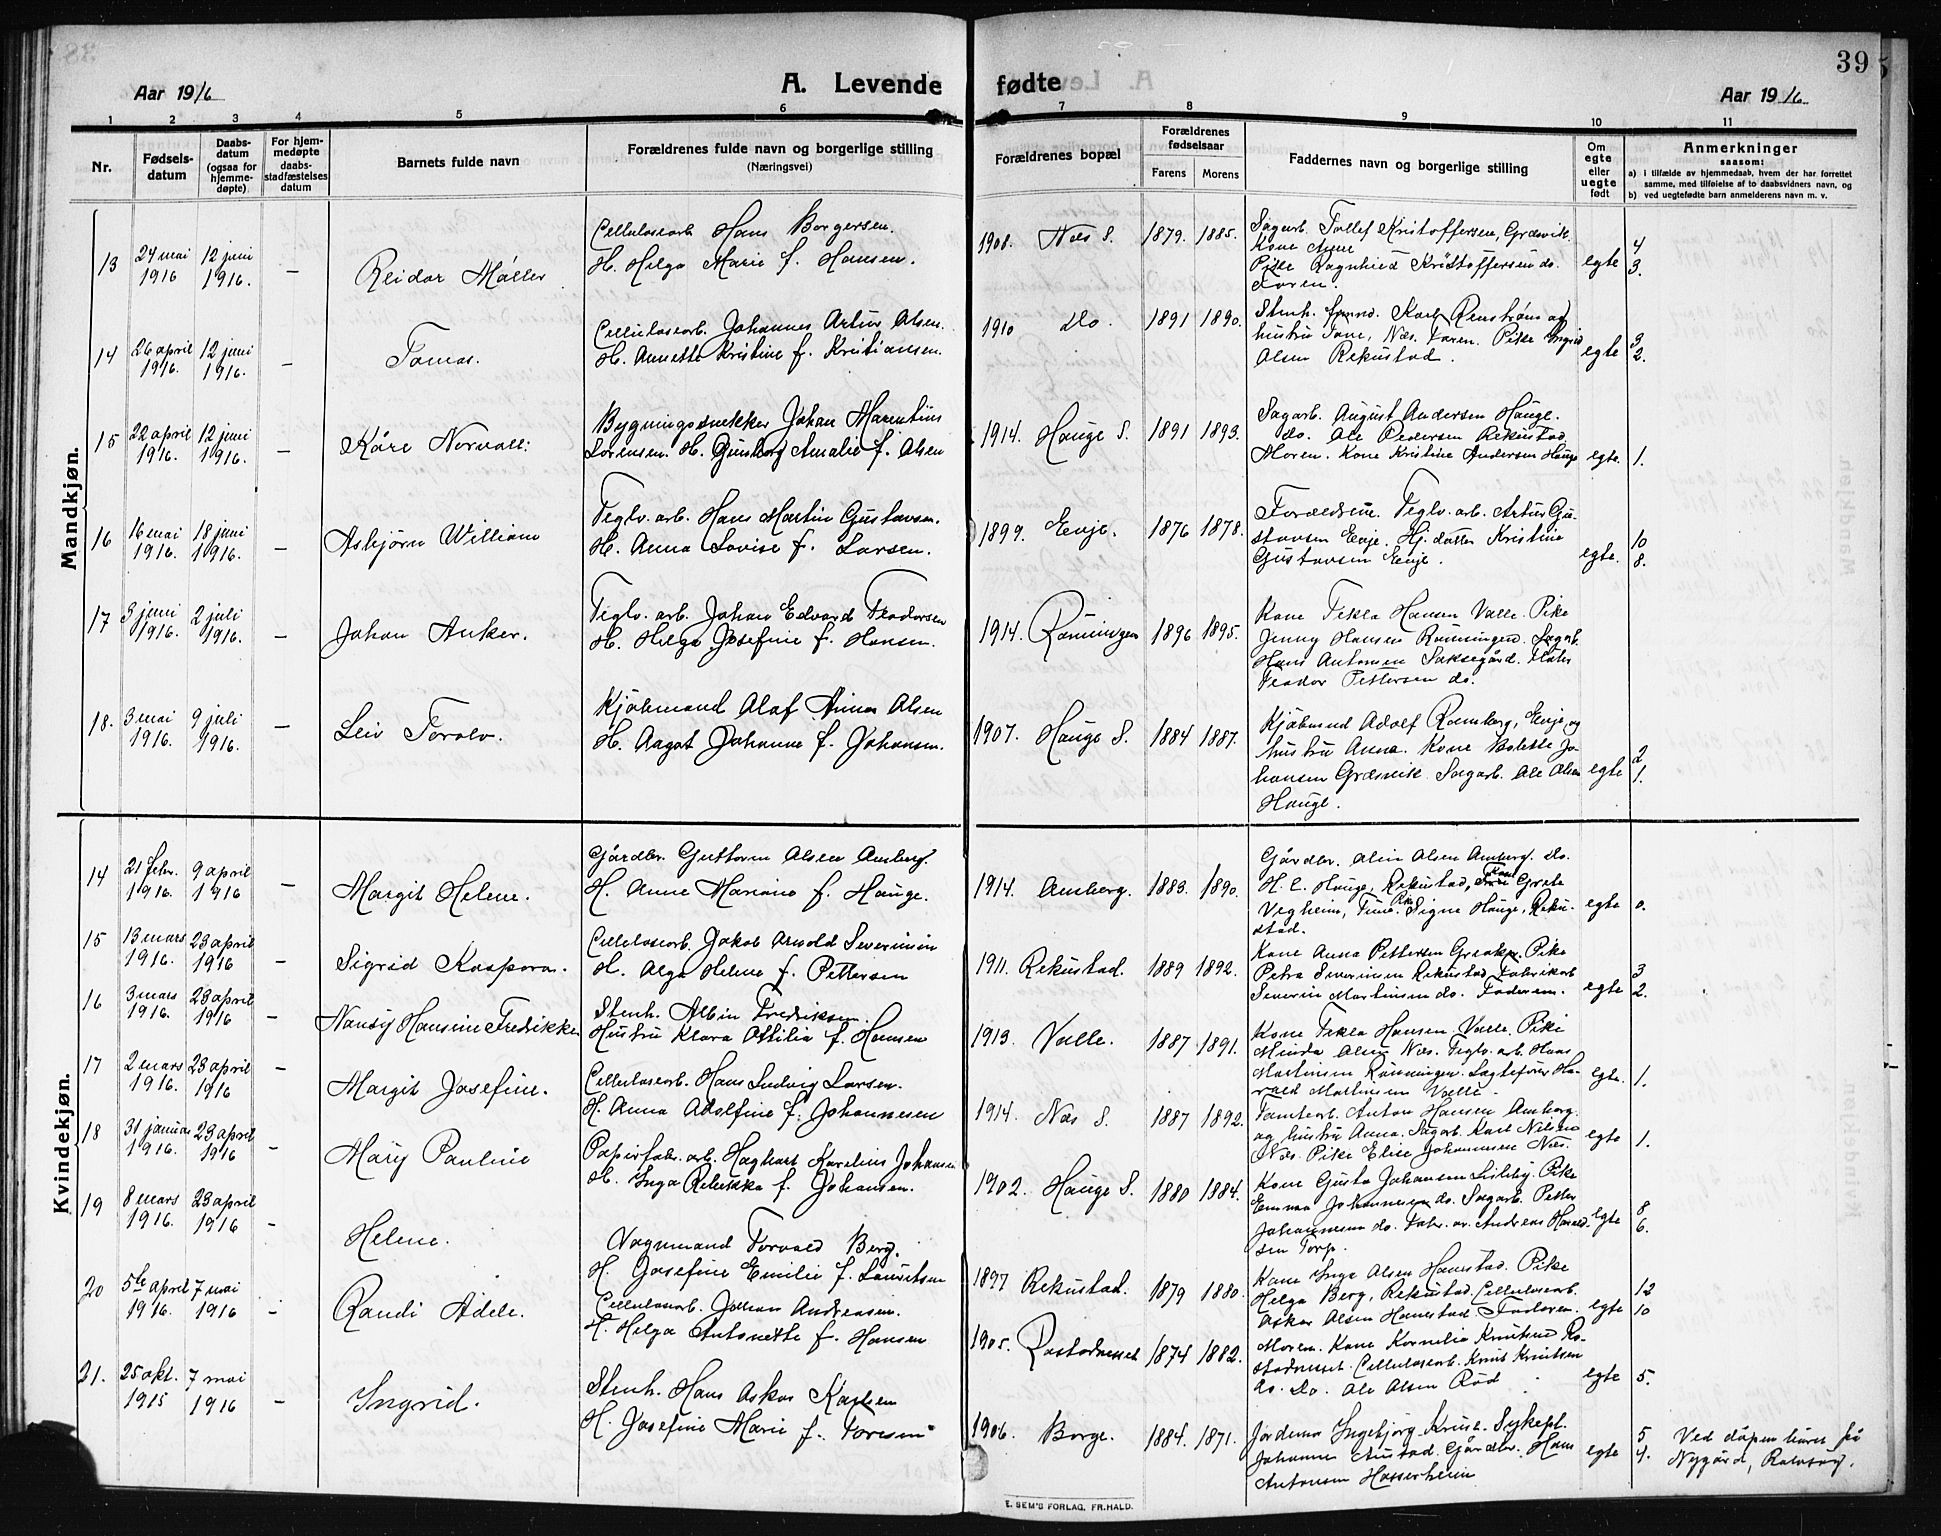 39
Aar 1916
A. Levende fødte
Aar 1916
1 2 3 4 5 6 7 8 9 10 11
Nr.
Fødsels-
datum
Daabs-
datum
(ogsaa for
hjemme-
døpte)
For hjem-
medøpte
daabs-
stadfæstelses
datum
Barnets fulde navn
Forældrenes fulde navn og borgerlige stilling
(Næringsvei)
Forældrenes bopæl
Forældrenes
fødselsaar
Farens Morens
Faddernes navn og borgerlige stilling
Om
egte
eller
uegte
født
Anmerkninger
saasom:
a) i tilfælde av hjemmedaab, hvem der har forrettet
samme, med tilføielse af to daabsvidners navn, og
b) ved uegtefødte barn anmelderens navn m. v.
Mandkjøn.
13 24 mai 1916 12 juni 1916. – Reidar Møller
Celluloseorb Hans Borgersen.
H. Helga Marie f. Hansen.
1908. Næs S. 1879. 1885.
Sagarb. Tollef Kristoffersen, Græsvik.
Kone Agne
Pike Ragnhild Kristoffersen do.
Faren.
egte 4 3.
14 26 april 1916. 12 juni 1916. – Tomas.
Cellulosearb. Johannes Artur Olsen.
H. Annette Kristine f. Kristiansen.
1910 do. 1891 1890.
Stenh. formd. Karl Renstrøm og
hustru Tone, Næs. Faren. Pike Ingrid
Olsen Rekustad.
egte 3 2.
15 22 april 1916. 12 juni 1916. – Kåre Norvall.
Bygningssnekker Johan Marentius
Sørensen. H. Gunborg Amalie f. Olsen
1914. Hauge S. 1891 1893.
Sagarb. August Andersen Hauge.
do. Ole Pedersen Rekustad
Moren. Kone Kristine Andersen Hauge
egte. 1.
16 16 mai 1916. 18 juni 1916. – Asbjørn William
Teglv. arb. Hans Martin Gustavsen.
H. Anna Lovise f. Larsen.
1899. Evje. 1876 1878.
Forældrene. Teglv. arb. Artur Gu-
stavsen Evje. Hj. datter Kristine
Gustavsen Evje.
egte. 10 8.
17 3 juni 1916. 2 juli 1916. – Johan Anker.
Teglv. arb. Johan Edvard Teodorsen
H. Helga Josefine f. Hansen.
1914. Rønningen 1896 1895.
Kone Tekla Hansen Valle. Pike
Jenny Hansen Rønningen. Sagarb.
Hans Antonsen Saksegård.
Teodor Pettersen do.
18. 3 mai 1916. 9 juli 1916. – Leiv Torolv.
Kjøbmand Olaf Olsen
H. Aagot Johanne f. Johansen.
1907. Hauge S. 1884 1887.
Kjøbmnd Adolf Ramberg, Evje, og
hustru Anna. Kone Bolette Jo-
hansen Græsvik. Sagarb. Ole Olsen
Hauge.
egte 2 1.
Kvindekjøn.
14 21 febr. 1916. 9 april 1916 – Margit Helene.
Gårdbr. Guttorm Olsen Amberg.
H. Anne Mariane f. Hauge.
1914. Amberg. 1883. 1890.
Gårdbr. Olin Olsen Amberg. do.
H. E. Hauge, Rekustad, Kone Grete
Vegheim, Tune. Pike Signe Hauge, Reku-
stad.
egte 0.
15 13 mars 1916. 23 april 1916 – Sigrid Kaspara.
Cellulosearb. Jakob Arnold Severinsen
H. Olga Helene f. Pettersen
1911. Rekustad. 1889 1892.
Kone Anna Pettersen Greaker. Pike
Petra Severinsen Rekustad Fabrikarb
Severin Martinsen do. Faderen.
egte 3 2.
16 3 mars 1916. 23 april 1916 – Nansy Hansine Fredrikke
Stenh. Albin Fredriksen.
Hustru Klara Ottilia f. Hansen
1913. Valle. 1887 1891.
Kone Tekla Hansen Valle. Pike
Minda Olsen Næs. Teglv. arb. Hans
Martinsen Rønningen. Ha-
rald Martinsen Valle.
egte. 1.
17 2 mars 1916. 23 april 1916 – Margit Josefine.
Cellulosearb. Hans Ludvig Larsen.
H. Anna Adolfine f. Johannesen
1914. Næs S. 1887 1892.
Tomtearb. Anton Hansen Amberg.
og hustru Anna. Sagarb. Karl Nilsen
Næs. Pike Elise Johannesen Næs.
egte 1.
18 31 januar 1916. 23 april 1916 – Mary Pauline
Papirfabr. arb. Hagbart Karelius Johansen
H. Inga Rebekka f. Johansen.
1902. Hauge S. 1880 1884.
Kone Gusta Johansen Lisleby. Pike
Emma Johannesen do. Sagarb. Petter
Johannesen do. Fabr. ar. Andreas Harald-
sen Torp.
egte 8 6.
19 8 mars 1916. 23 april 1916 – Helene.
Vognmand Torvald Berg.
H. Josefine Emilie f. Lauritsen
1897 Rekustad. 1879 1880.
Kone Inga Olsen Hanestad. Pike
Helga Berg, Rekustad. Cellulosearb.
Oskar Olsen Hanestad. Faderen.
egte 12 10
20 5te april 1916. 7 mai 1916 – Randi Adele.
Cellulosearb. Johan Andreasen.
H. Helga Antonette f. Hansen
1905. Rostadnesset 1874 1882.
Moren. Kone Kornelia Knutsen Ro-
stadnesset. Cellulosearb. Knut Knutsen
do. do. Ole Olsen Rød
egte 5.
21. 25 okt. 1915 7 mai 1916 – Ingrid.
Stenh. Hans Oskar Karlsen
H. Josefine Marie f. Toresen
1906. Borge. 1884. 1871.
Jordmor Ingebjørg Kruse. Sykepl.
Johanne Austad. Gårdbr. Hans
Antonsen Hasserheim
egte 5 4.
Ved dåpen buret på
Nygård, Rolvsøy.
E. SEM'S FORLAG, FR.HALD.